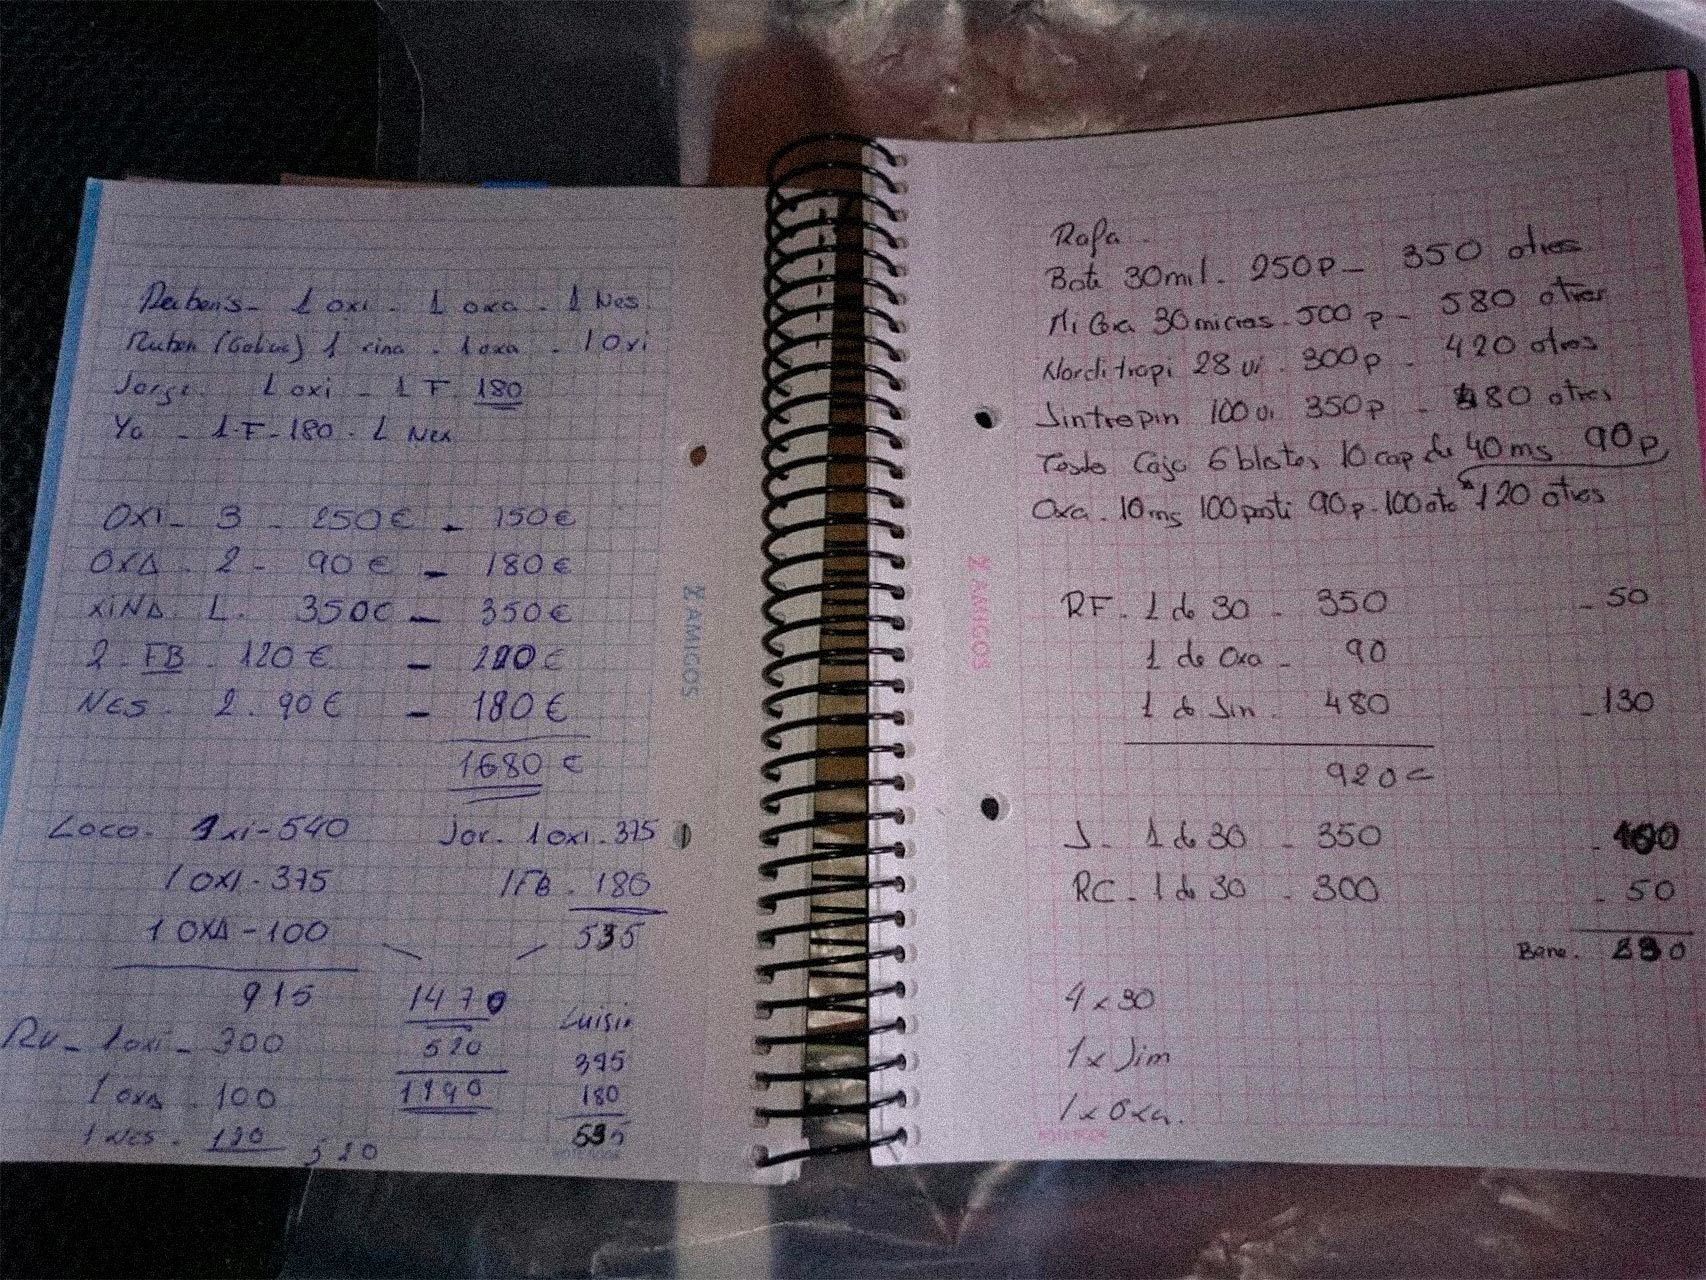 1 oxi - 1 oxa - 1 Nes.
Ruben 1 xina - 1 oxa - 1 Oxi
Jorge. 1 oxi - 1 F. 180
Yo - 1 F - 180 - 1 Nes
OXI - 3 - 250€ - 750€
OXA - 2 - 90€ - 180€
XINA. 1. 350€ - 350€
2 - FB - 120€ - €
NES - 2. 90€ - 180€
1680 €
Loco - xi - 540
1 OXI - 375
1 OXA - 100
915
Jor - 1 oxi - 375
1FB - 180
535
1470
520
1190
Luisin
395
180
595
RU - 1 oxi - 300
1 oxa - 100
1 Nes - 120
520
AMIGOS
Rafa
Bote 30mil - 250p - 350 otros
30 micras - 500p - 580 otros
Norditropi 28 ui - 300p - 420 otros
Sintropin 100 ui 350p - 480 otros
Testo Caja 6 blister 10 cap de 40 mg 90p
Oxa - 10mg 100 pasti 90p - 100 120 otros
RF - 1 de 30 - 350 - 50
1 de Oxa - 90
1 de Sin - 480 - 130
920€
J - 1 de 30 - 350
RC - 1 de 30 - 300 - 50
Bene.
4 x 30
1 x Sim
1 x Oxa.
AMIGOS